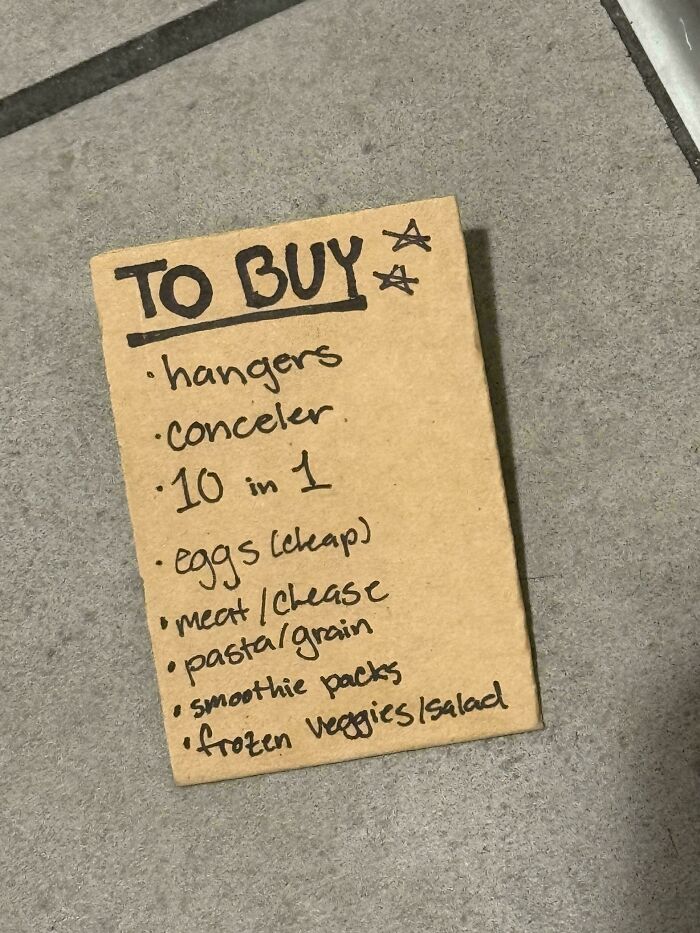 TO BUY
· hangers
· conceler
· 10 in 1
· eggs (cheap)
· meat/chease
· pasta/grain
· smoothie packs
· frozen veggies/salad